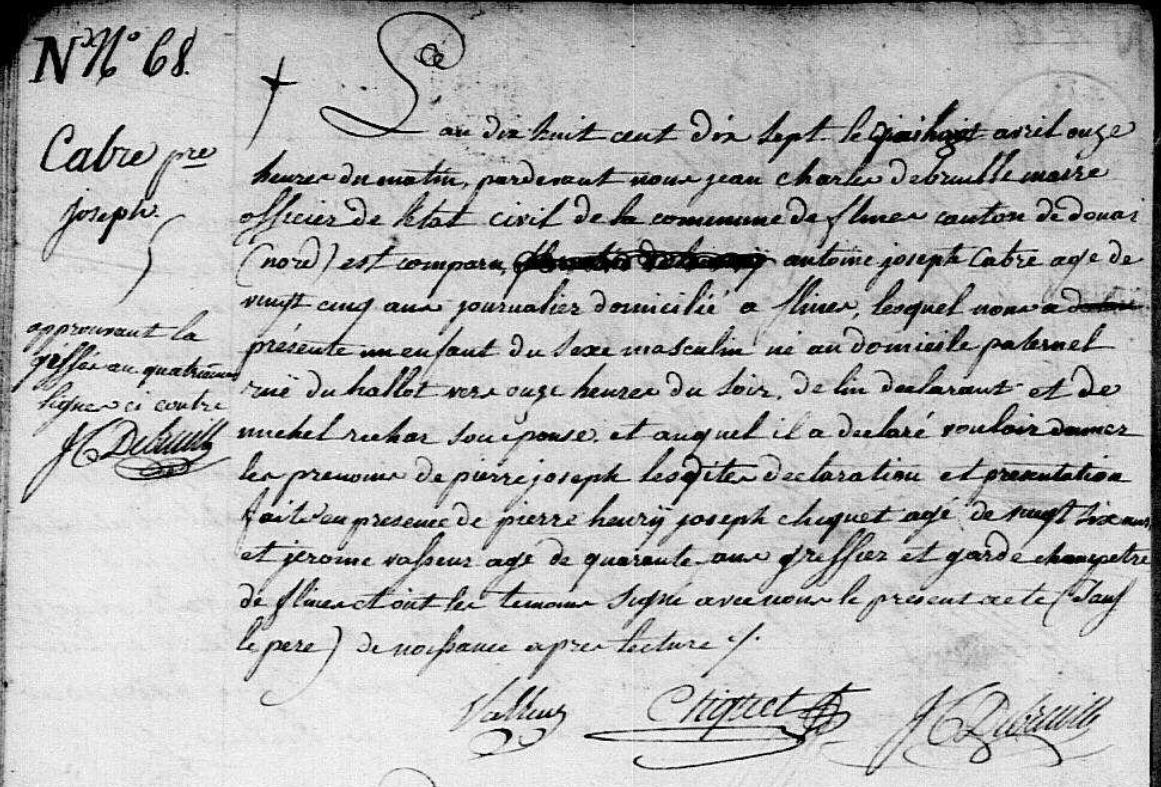 N N° 68.
Cabre pre
joseph.
approuvant la
giffée au quatrieme
ligne ci contre
JC Debruill
Ce
L'an dix huit cent dix sept le avril onze
heures du matin, pardevant nous jean charles debruille maire
officier de letat civil de la commune de flines canton de douai
(nord) est comparu, antoine joseph Cabre age de
vingt cinq ans journalier domicilié a flines, lesquel nous a
présente un enfant du sexe masculin né au domicile paternel
ruë du hallot vers onze heures du soir, de lin declarant et de
michel richar son epouse. et auquel il a declaré vouloir donner
les prenoms de pierre joseph lesdites declaration et presentation
faite en presence de pierre henrÿ joseph chiquet agé de vingt six ans
et jerome vasseur age de quarante ans greffier et garde champetre
de flines et ont les temoins signe avec nous le présent acte (Sauf
le pere) de naissance apres lecture ./.
Vasseur Chiquet JC Debruill